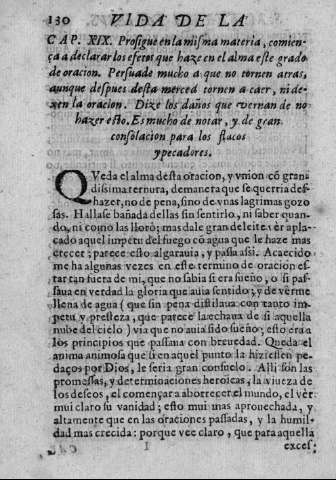 130 VIDA DE LA
CAP. XIX. Prosigue en la misma materia, comien-
ça a declarar los efetos que haze en el alme este grado
de oracion. Persuade mucho a que no tornen atras,
aunque despues desta merced tornen a caer, ni de-
xen la oracion. Dize los daños que vernan de no
hazer esto. Es mucho de notar, y de gran
consolacion para los flacos
y pecadores.
QVeda el alma desta oracion, y vnion cõ gran-
dissima ternura, de manera que se querria desha-
zer, no de pena, sino de vnas lagrimas gozo
sas. Hallase bañada dellas sin sentirlo, ni saber quan-
do, ni como las llorò; mas dale gran deleite vèr apla-
cado aquel impetu del fuego cõ agua que le haze mas
crecer; parece esto algarauia, y passa assi. Acaecido
me ha algunas vezes en este termino de oracion es-
tar tan fuera de mi, que no sabia si era sueño, o si pas-
saua en verdad la gloria que auia sentido; y de vèrme
llena de agua (que sin pena distilaua con tanto im-
petu y presteza, que parece la echaua de si aquella
nube del cielo) via que no auia sido sueño; esto era a
los principios que passaua con breuedad. Queda el
anima animosa que si en aquel punto la hiziessen pe-
daços por Dios, le seria gran consuelo. Alli son las
promessas, y determinaciones heroicas, la viueza de
los deseos, el començar a aborrecer el mundo, el vèr
mui claro su vanidad; esto mui mas aprouechada, y
altamente que en las oraciones passadas, y la humil-
dad mas crecida: porque vee claro, que para aquella
I exces-